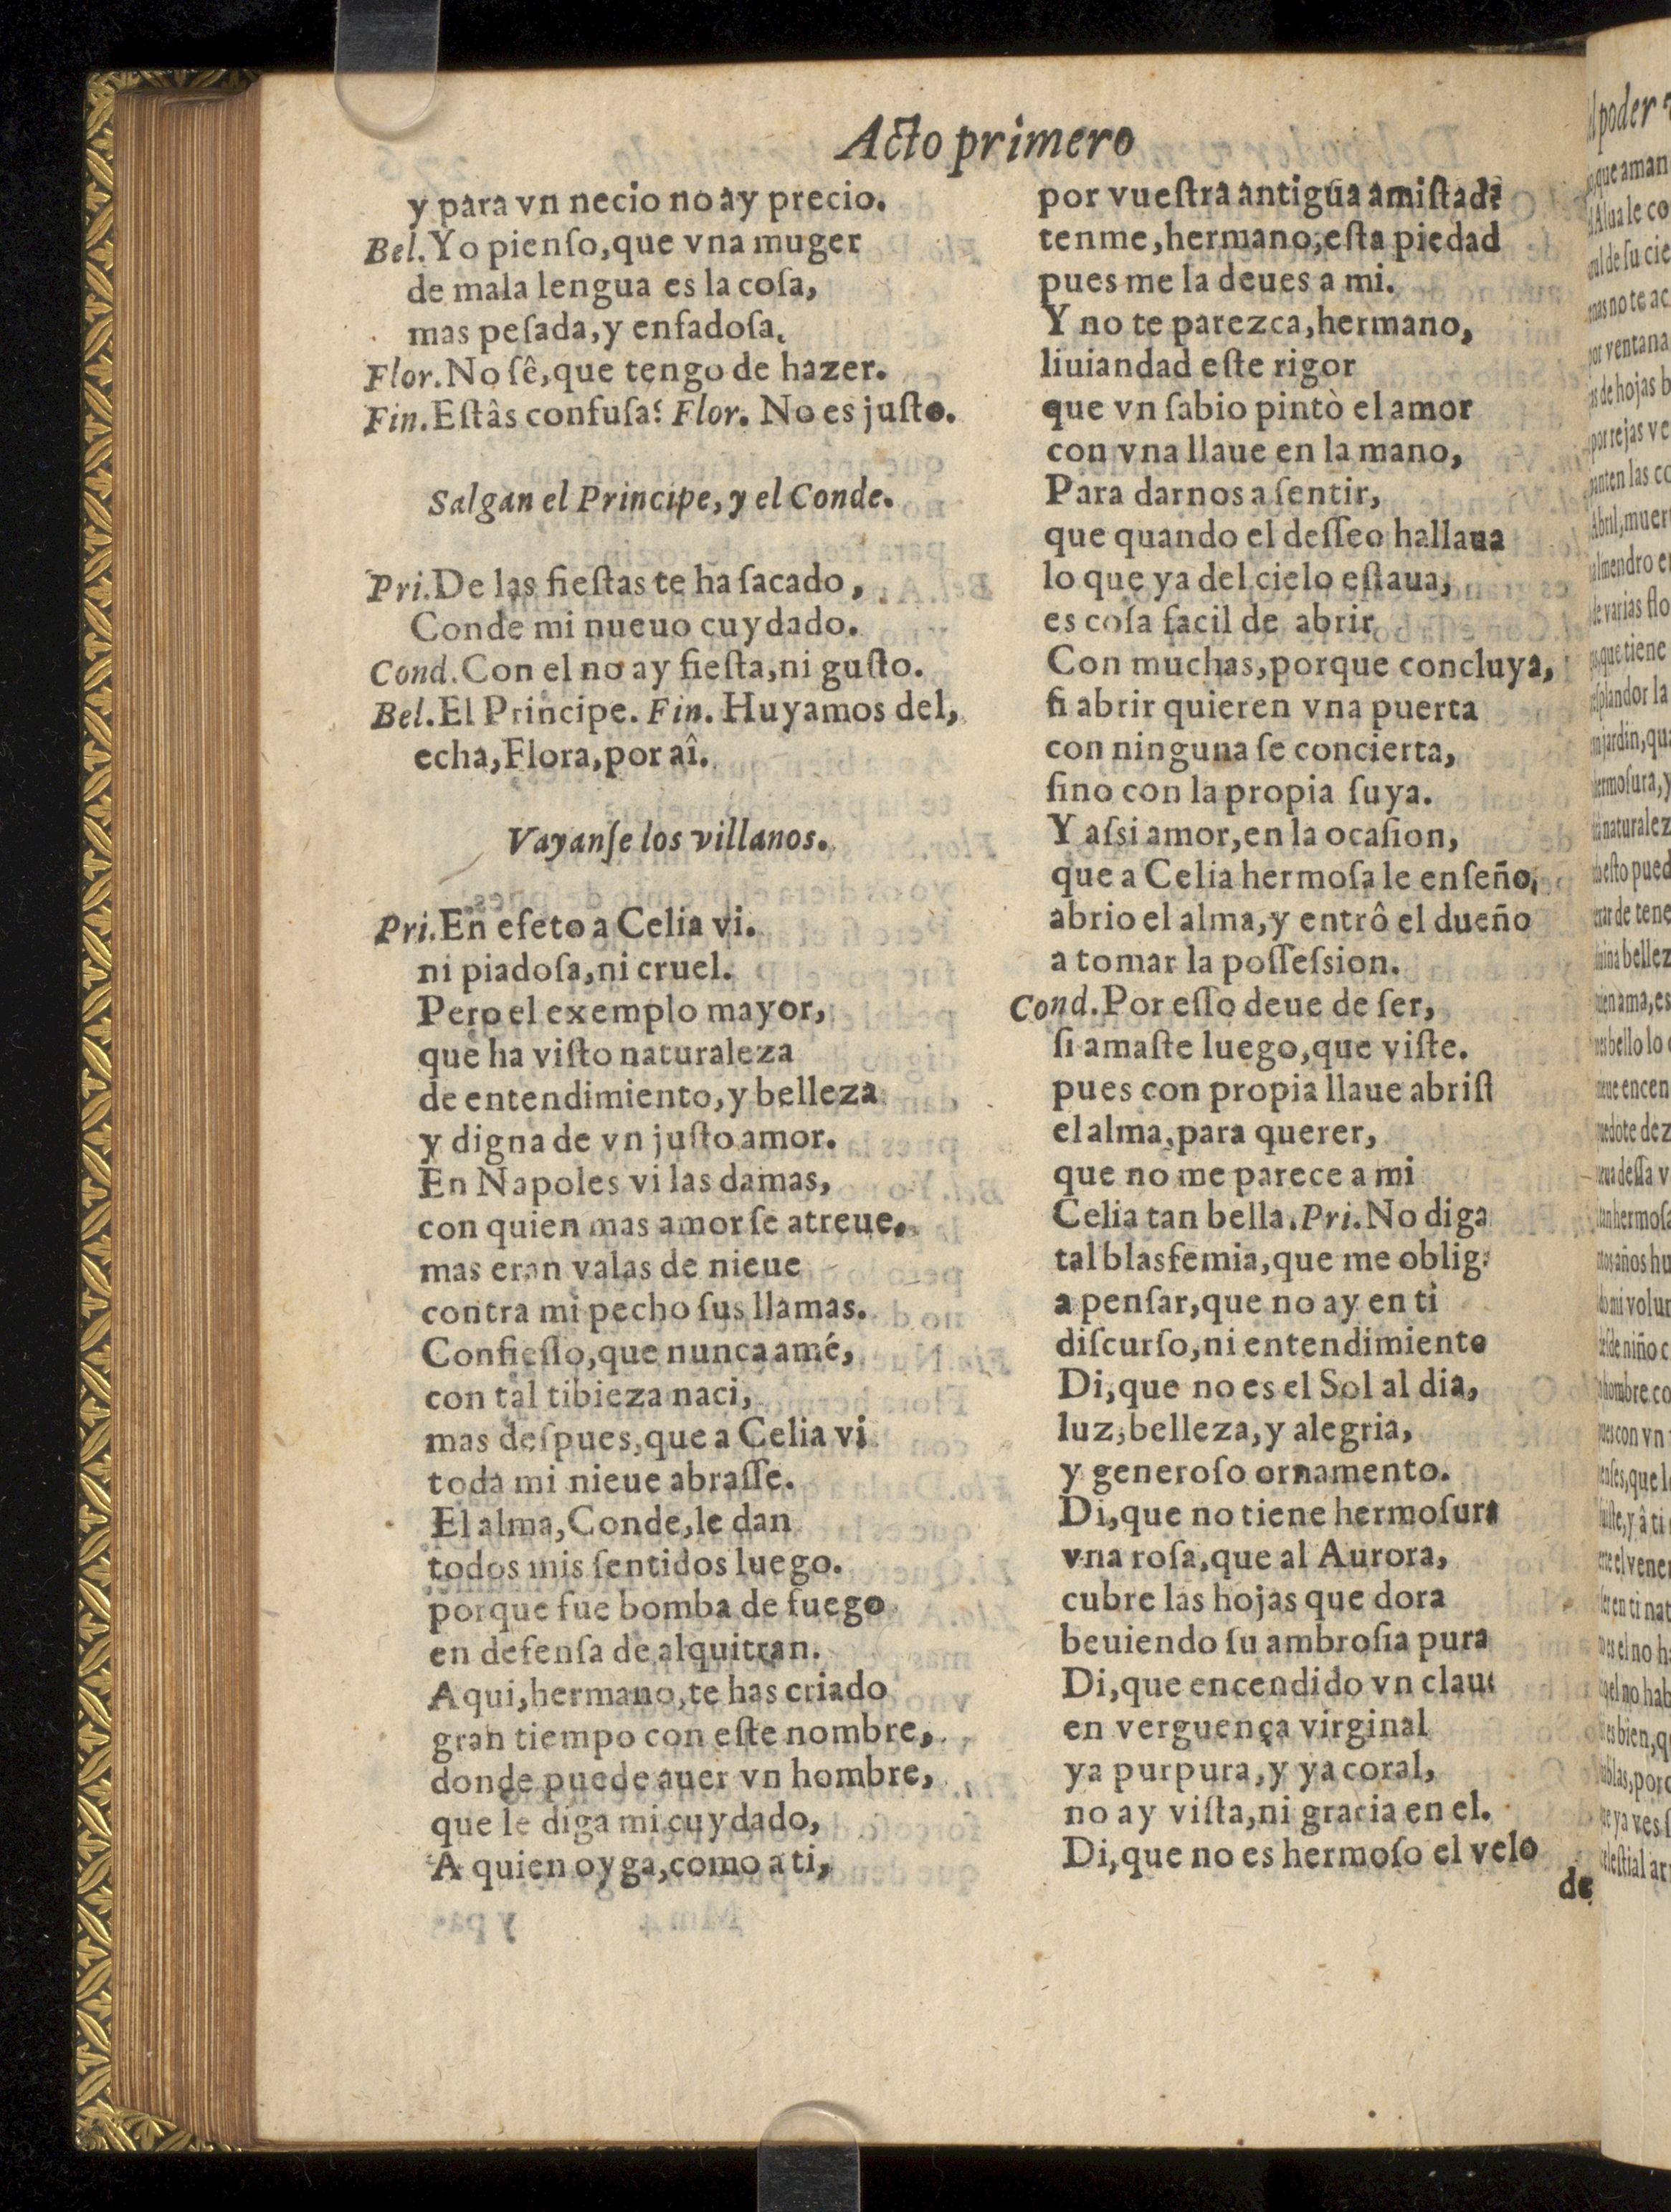 Acto primero
y para vn necio no ay precio.
Bel. Yo pienſo, que vna muger
de mala lengua es la coſa,
mas peſada, y enfadoſa.
Flor. No ſê, que tengo de hazer.
Fin. Eſtâs confuſa? Flor. No es juſto.
Salgan el Principe, y el Conde.
Pri. De las fieſtas te ha ſacado,
Conde mi nueuo cuydado.
Cond. Con el no ay fieſta, ni guſto.
Bel. El Principe. Fin. Huyamos del,
echa, Flora, por aî.
Vayanſe los villanos.
Pri. En efeto a Celia vi.
ni piadoſa, ni cruel.
Pero el exemplo mayor,
que ha viſto naturaleza
de entendimiento, y belleza
y digna de vn juſto amor.
En Napoles vi las damas,
con quien mas amor ſe atreue.
mas eran valas de nieue
contra mi pecho ſus llamas.
Confieſſo, que nunca amé,
con tal tibieza naci,
mas deſpues, que a Celia vi
toda mi nieue abraſſe.
El alma, Conde, le dan
todos mis ſentidos luego.
porque fue bomba de fuego
en defenſa de alquitran.
Aqui, hermano, te has criado
gran tiempo con eſte nombre,
donde puede auer vn hombre,
que le diga mi cuydado,
A quien oyga, como a ti,
por vueſtra antigua amiſtad
tenme, hermano, eſta piedad
pues me la deues a mi.
Y no te parezca, hermano,
liuiandad eſte rigor
que vn ſabio pintò el amor
con vna llaue en la mano,
Para darnos a ſentir,
que quando el deſſeo hallaua
lo que ya del cielo eſtaua,
es coſa facil de abrir
Con muchas, porque concluya,
ſi abrir quieren vna puerta
con ninguna ſe concierta,
ſino con la propia ſuya.
Y aſsi amor, en la ocaſion,
que a Celia hermoſa le enſeño,
abrio el alma, y entrô el dueño
a tomar la poſſeſsion.
Cond. Por eſſo deue de ſer,
ſi amaſte luego, que viſte.
pues con propia llaue abriſt
el alma, para querer,
que no me parece a mi
Celia tan bella. Pri. No diga
tal blasfemia, que me oblig
a penſar, que no ay en ti
diſcurſo, ni entendimiento
Di, que no es el Sol al dia,
luz, belleza, y alegria,
y generoſo ornamento.
Di, que no tiene hermoſura
vna roſa, que al Aurora,
cubre las hojas que dora
beuiendo ſu ambroſia pura
Di, que encendido vn claue
en verguença virginal
ya purpura, y ya coral,
no ay viſta, ni gracia en el.
Di, que no es hermoſo el velo
de